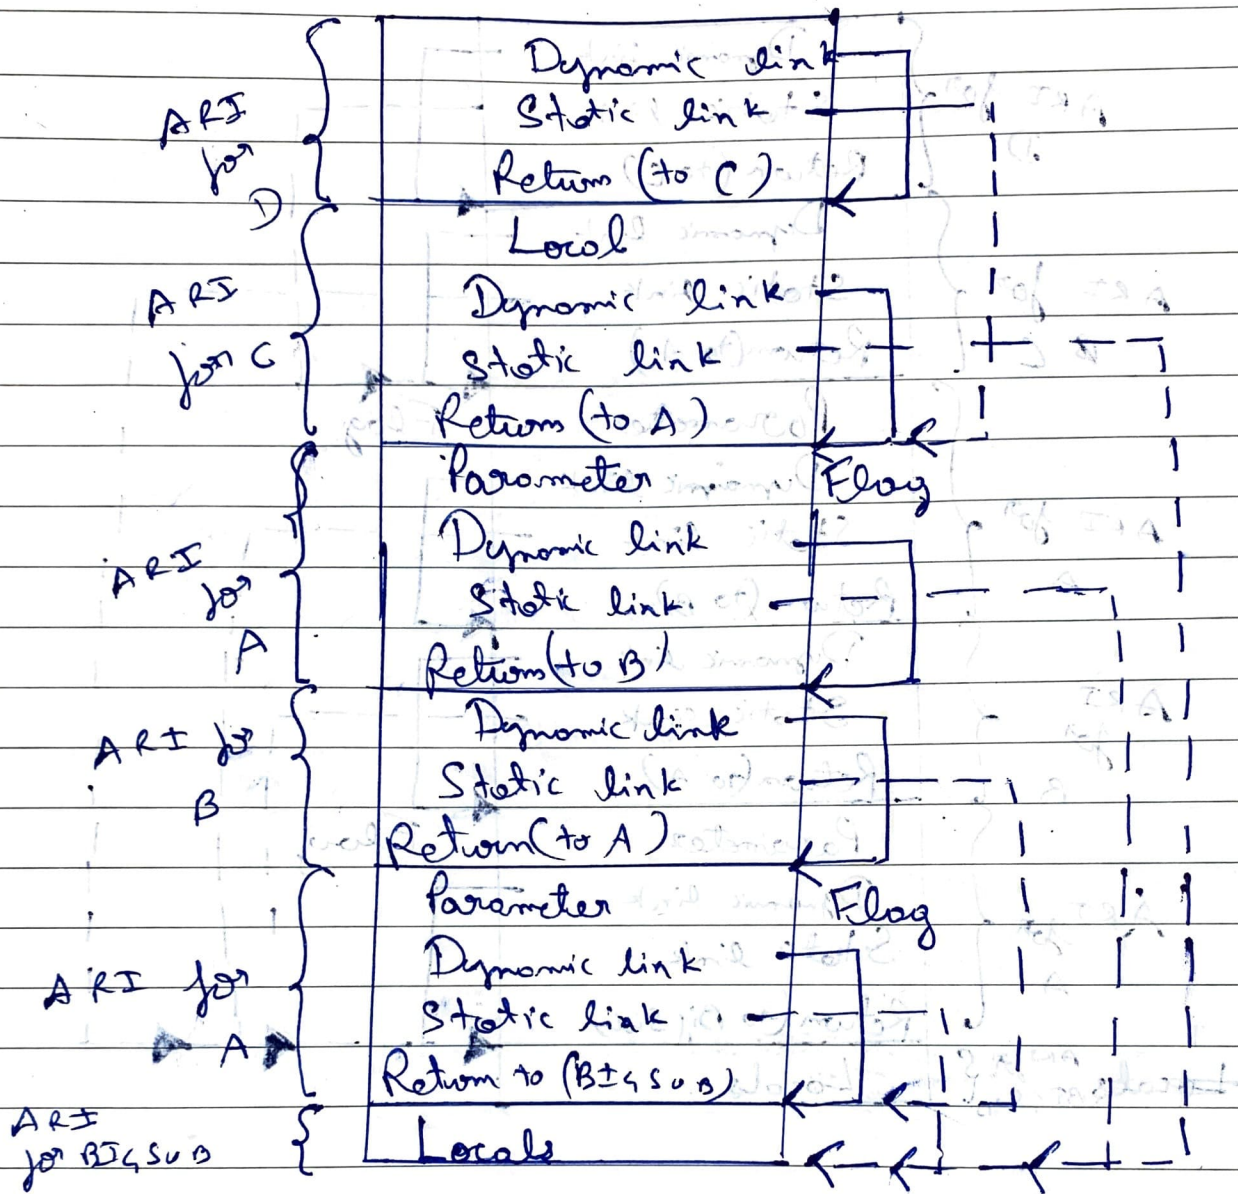 Dynamic link
Static link
Return (to C)
ARI
for
D
Local
Dynamic link
Static link
Return (to A)
ARI
for C
Parameter Flag
Dynamic link
Static link
Return (to B)
ARI
for
A
Dynamic link
Static link
Return (to A)
ARI for
B
Parameter Flag
Dynamic link
Static link
Return to (BIGSUB)
ARI for
A
Locals
ARI
for BIGSUB